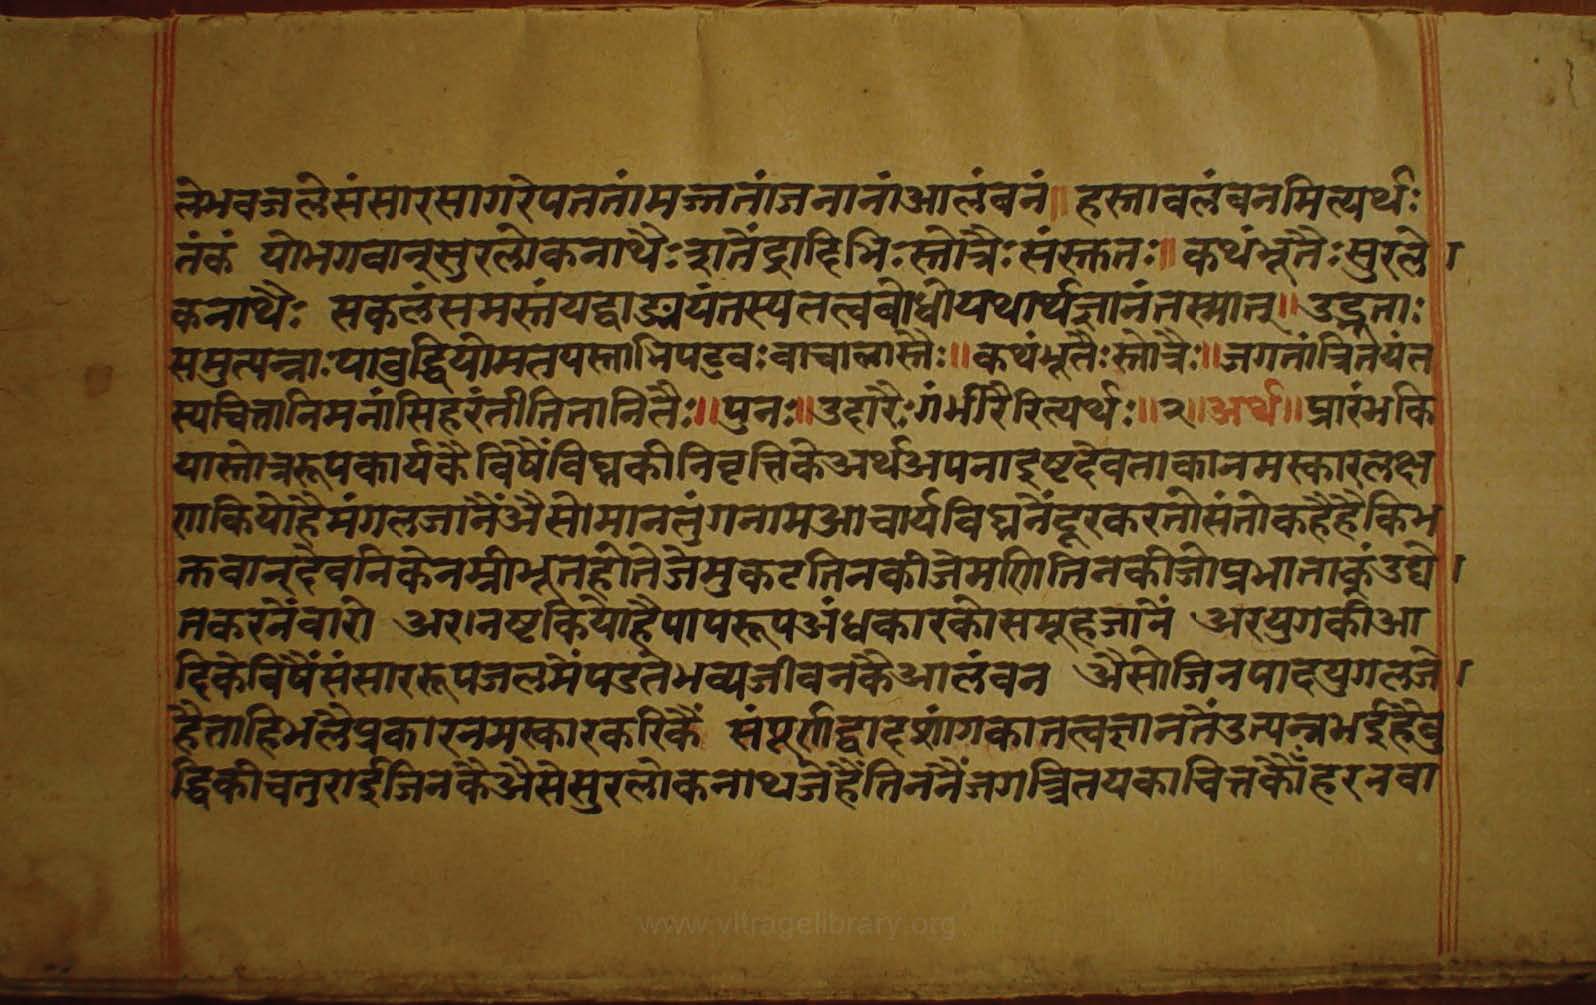 लेभवजलेसंसारसागरेपततांमज्जतांजनानांआलंबनं॥ हस्तावलंबनमित्यर्थः
तंकं योभगवान्सुरलोकनाथैः शतेंद्रादिभिःस्तोत्रैःसंस्तुतः॥ कथंभूतैःसुरलो
कनाथैः सकलंसमस्तंयद्वाङ्मयंतस्यतत्वबोधोयथार्थज्ञानंतस्मात्॥ उद्भूताः
समुत्पन्नाःयाबुद्धिर्योमतयस्ताभिपटुवःवाचालास्तैः॥ कथंभूतैःस्तोत्रैः॥ जगतांत्रितयंत
स्यचित्तानिमनांसिहरंतीतितानितैः॥ पुनः॥ उदारैःगंभीरैरित्यर्थः॥ २॥ अर्थ॥ प्रारंभकि
यास्तोत्ररूपकार्यकैविषैंविघ्नकीनिवृत्तिकेअर्थअपनाइष्टदेवताकानमस्कारलक्ष
णकियोहैमंगलजानैंअैसोमानतुंगनामआचार्यविघ्ननैंदूरकरतोसंतोकहैहैकिभ
क्तवान्देवनिकेनम्रीभूतहोतेजेमुकटतिनकीजेमणितिनकीजोप्रभाताकूंउद्यो
तकरनैंवारो अर।नष्टकियोहैपापरूपअंधकारकोसमूहजानें अरयुगकीआ
दिकेविषैंसंसाररूपजलमैंपडतेभव्यजीवनकैआलंबन अैसोजिनपादयुगलजो
हैताहिभलैप्रकारनमस्कारकरिकैं संपूर्णद्वादशांगकातत्वज्ञानतैंउत्पन्नभईहैबु
द्धिकीचतुराईजिनकैअैसेसुरलोकनाथजेहैंतिननैंजगत्त्रितयकाचित्तकौंहरनवा
www.vitragelibrary.org